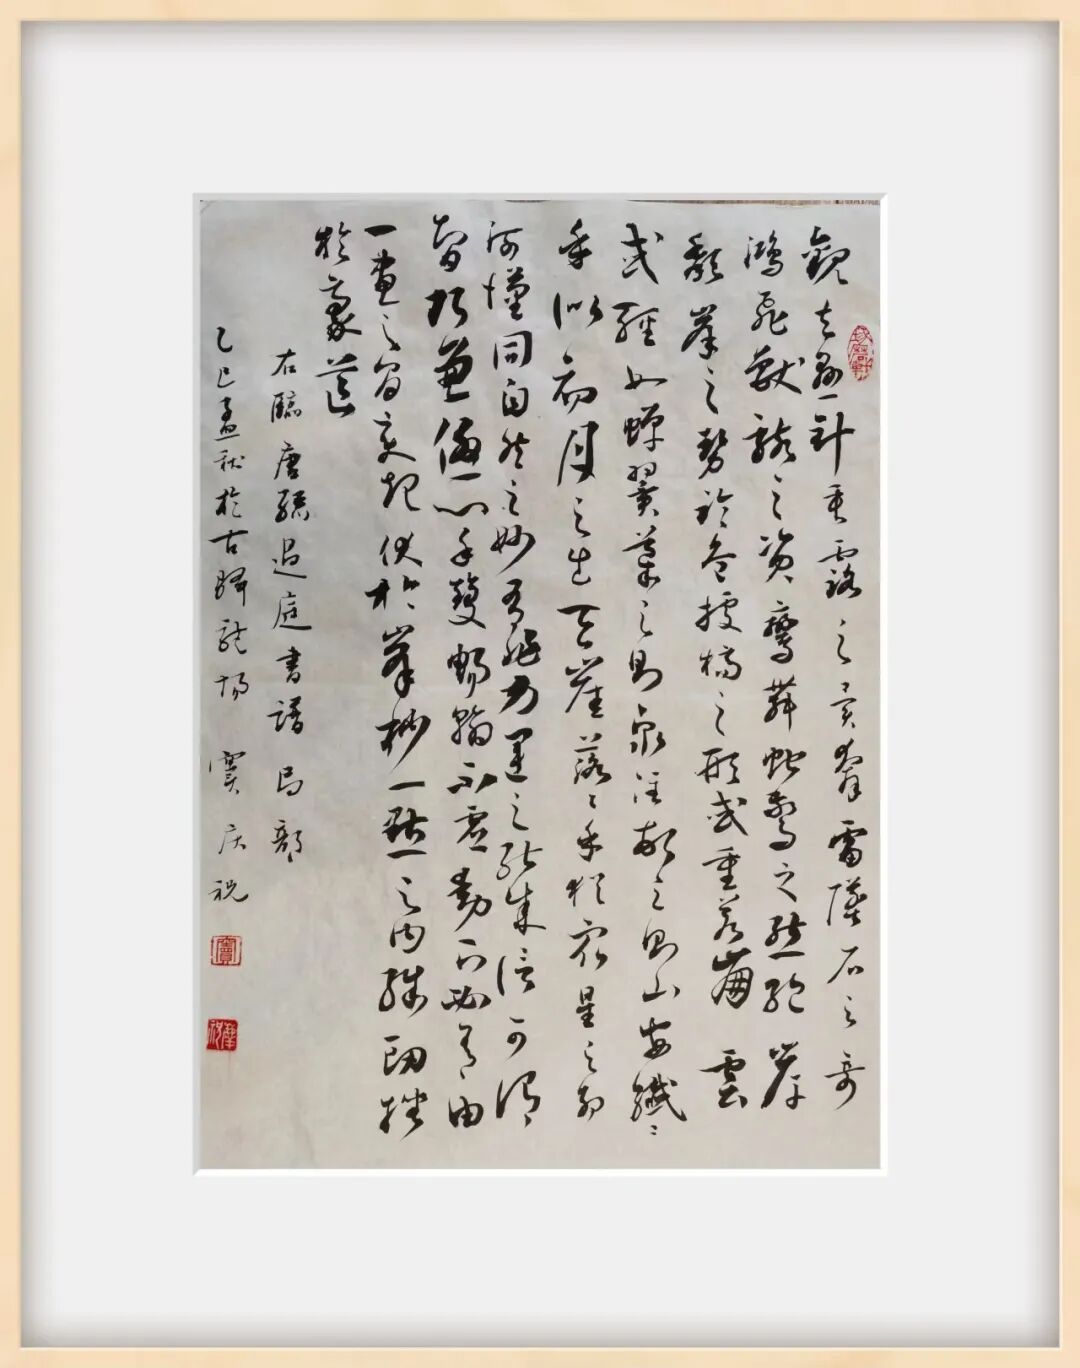 觀夫懸針垂露之異奔雷墜石之奇
鴻飛獸駭之資鸞舞蛇驚之態絕岸
頹峯之勢臨危據槁之形或重若崩雲
或輕如蟬翼導之則泉注頓之則山安纖〻
乎似初月之出天崖落〻乎猶衆星之列
河漢同自然之妙有非力運之能成信可謂
智巧兼優心手雙暢翰不虛動下必有由
一畫之間變起伏於峯杪一點之內殊衄挫
於豪芒
右臨唐孫過庭書譜局部
乙巳孟秋於古驛龍場 竇庆祝
竇